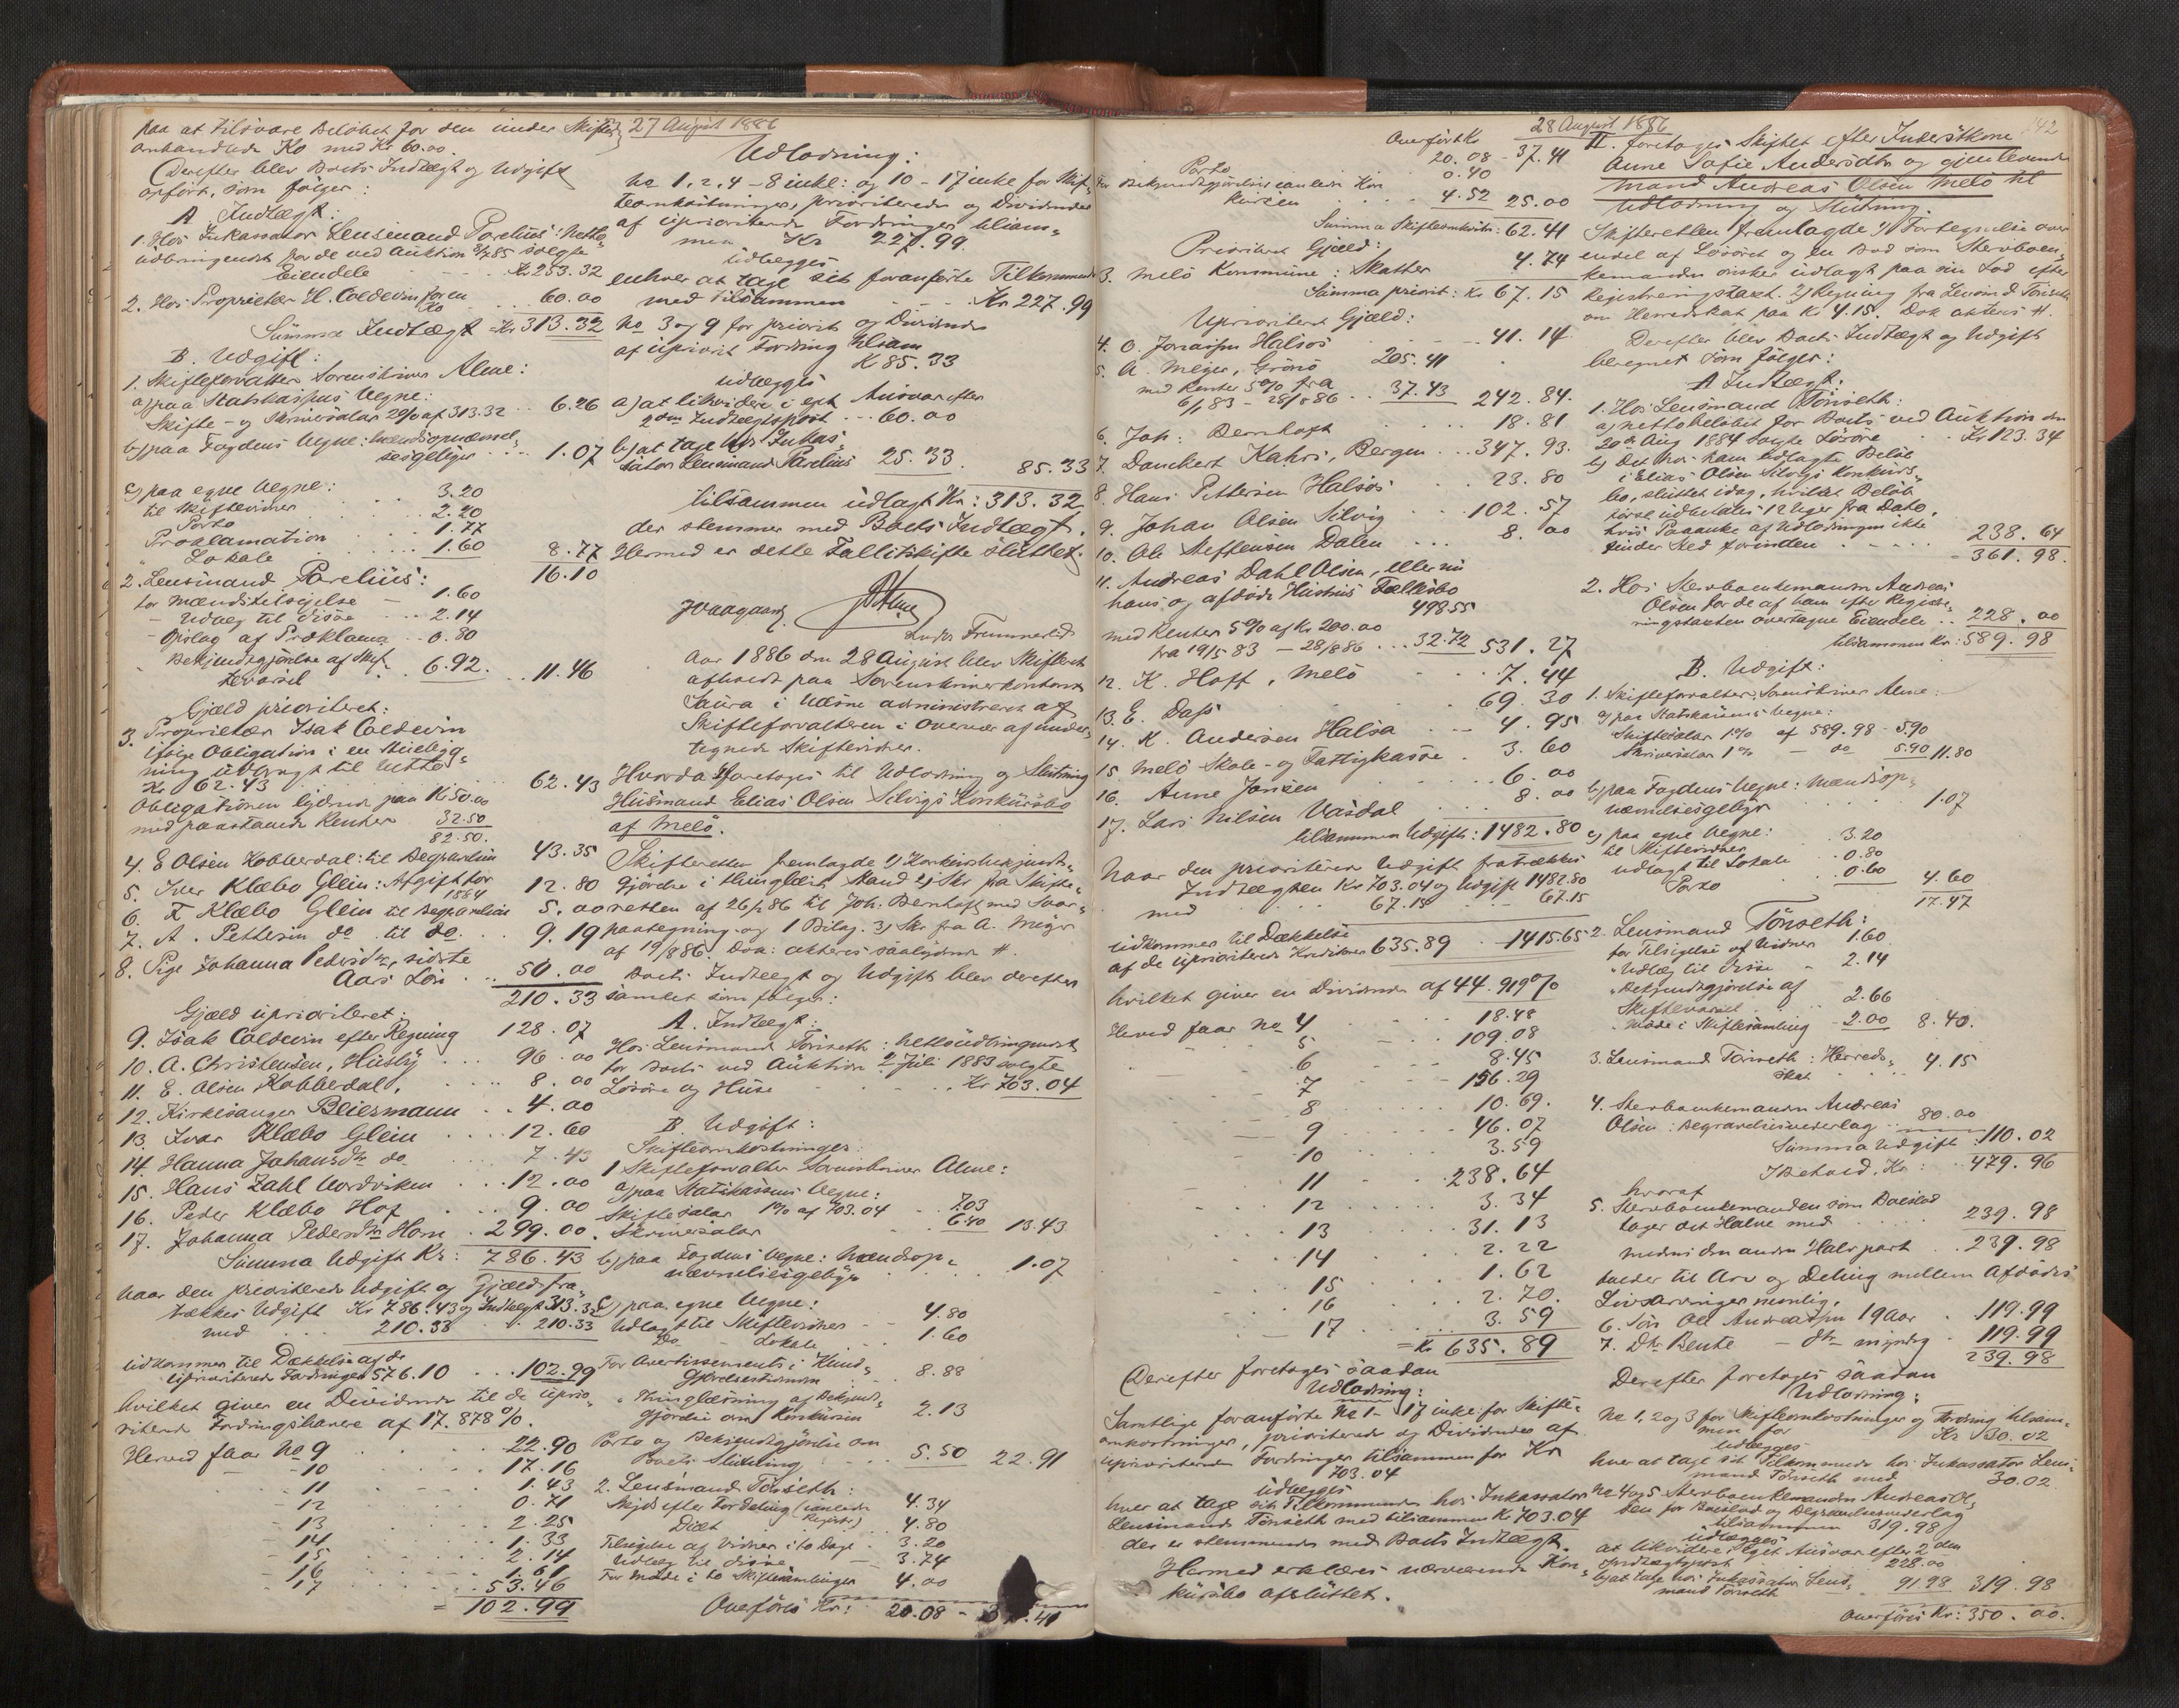 paa at tilsvare Beløbet for den under Skiftet
omhandlede Ko med Kr 60.00.
Derefter blev Boets Indtægt og Udgift
opført, som følger:
A. Indtægt:
1. Hos Inkassator Lensmand Parelius: Netto
udbringendet for de ved Auktion 8/7 85 solgte
Eiendele Kr 253.32
2. Hos Proprietær H. Coldevin for en
Ko 60.00
Summa Indtægt = Kr 313.32
B. Udgift:
1. Skifteforvalter Sorenskriver Alme:
a) paa Statskassens Vegne:
Skifte- og Skriversalar 2% af 313.32 .. 6.26
b) paa Fogdens Vegne: Mændsopnævnel-
sesgebyr 1.07
c) paa egne Vegne:
til Skiftevidner 3.20
Porto 2.20
Proklamation 1.77
" Lokale 1.60 8.77
16.10
2. Lensmand Parelius:
for Mænds tilsigelse - 1.60
- Udlæg til disse .. 2.14
- Opslag af Proklama .. 0.80
" Bekjendtgjørelse af Skif-
tevarsel 6.92. .. 11.46
Gjæld prioriteret:
3. Proprietær Isak Coldevin
ifølge Obligation i en Stuebyg-
ning udbragt til Netto
Kr 62.43 62.43
Obligationen lydende paa Kr 50.00
med paastaaende Renter 32.50
82.50.
4. E Olsen Kobberdal: til Begravelsen 43.35
5. Iver Klæbo Glein: Afgift for
1884 12.80
6. I Klæbo Glein til Begravelsen 5.00
7. A. Pettersen do til do. .. 9.19
8. Pige Johanna Pedersdtr, sidste
Aars Løn .. 50.00
210.33
Gjæld uprioriteret:
9. Isak Coldevin efter Regning 128.07
10. A. Christensen, Husby .. 96.00
11. E. Olsen Kobberdal, .... 8.00
12. Kirkesanger Bliesmann .. 4.00
13. Ivar Klæbo Glein .... 12.60
14. Hanna Johansdtr do .... 7.43
15. Hans Zahl Nordviken ... 12.00
16. Peder Klæbo Hof .. 9.00
17. Johanna Pedersdtr Horn . 299.00.
Summa Udgift Kr: 786.43
Naar den prioriterede Udgift og Gjæld fra-
trækkes Udgift Kr 786.43 og Indtægt 313.32
med ... 210.33 .. 210.33
udkommer til Dækkelse af de
uprioriterede Fordringer 576.10 ... 102.99
hvilket giver en Dividende til de uprio-
riterede Fordringshavere af 17.878%.
Herved faar No 9 .... 22.90
- - 10 .... 17.16
- 11 .... 1.43
- 12 .... 0.71
- 13 .... 2.25
- 14 .... 1.33
- 15 .... 2.14
- 16 .... 1.61
- 17 .... 53.46
= 102.99
27 August 1886
Udlodning:
No 1, 2, 4 - 8 inkl: og 10 - 17 inkl for Skif-
teomkostninger, prioriterede og Dividender
af uprioriterede Fordringer tilsam-
men Kr 227.99
udlægges
enhver at tage sit foranførte Tilkommende
med tilsammen ... Kr 227.99
No 3 og 9 for priorit og Dividende
af upriorit Fordring tilsam
K 85.33
udlægges
a) at likvidere i eget Ansvar efter
2den Indtægtspost ... 60.00
b) at tage hos Inkas-
sator Lensmand Parelius 25.33. 85.33
tilsammen udlagt Kr: 313.32
der stemmer med Boets Indtægt.
Hermed er dette Fallitskifte sluttet.
Aar 1886 den 28 August blev Skifteret
afholdt paa Sorenskriverkontoret
Saura i Næsne administreret af
Skifteforvalteren i Overvær af under-
tegnede Skiftevidner.
Hvorda foretoges til Udlodning og Slutning
Husmand Elias Olsen Selvigs Konkursbo
af Melø.
Skifteretten fremlagde 1) Konkursbekjendt-
gjørelse i thinglæst Stand 2) Skr fra Skifte-
retten af 26/2 86 til Joh. Bernhoft med Svar-
paategning og 1 Bilag. 3) Skr. fra A. Meyer
af 19/8 86. Dok: akteres saalydende #.
Boets Indtægt og Udgift blev derefter
samlet som følger:
A. Indtægt:
Hos Lensmand Tönseth: Nettoudbringendet
for Boets ved Auktion 2 Juli 1883 solgte
Løsøre og Huse .... Kr 703.04
B. Udgift:
Skifteomkostninger:
1 Skifteforvalter Sorenskriver Alme:
a) paa Statskassens Vegne:
Skiftesalar 1% af 703.04 .. 7.03
Skriversalar .. 6.40 13.43
b) paa Fogdens Vegne: Mændsop-
nævnelsesgebyr 1.07
c) paa egne Vegne:
Udlagt til Skiftevidner - - 4.80
Do - Lokale . . 1.60
For Avertissements i Kund-
gjørelsestidende 8.88
" Thinglæsning af Bekjendt-
gjørelse om Konkursen 2.13
Porto og Bekjendtgjørelse om
Boets Slutning 5.50 22.91
2. Lensmand Tönseth:
Skyds efter Fordeling (
Registr:) 4.34
Diæt 4.80
Tilsigelse af Vidner i to Dage . 3.20
Udlæg til disse - 3.74
For Møde i to Skiftesamlinger 4.00
Overføres Kr: 20.08 - 37.41
28 August 1886
Overført Kr 20.08 - 37.41
Porto 0.40
For Bekjendtgjørelser Kon
kursen .... 4.52 25.00
Summa Skifteomkostn: 62.41
Prioriteret Gjæld:
3. Melö Kommune: Skatter 4.74
Summa priorit: Kr 67.15
Uprioriteret Gjæld:
4. O. Jonassen Halsøs .... 41.14
5. A. Meyer, Grönö 205.41
med Renter 5% fra
6/1 83 - 28/8 86 .. 37.43 242.84.
6. Joh: Bernhoft .... 18.81
7. Danckert Kahrs, Bergen .. 347.93.
8. Hans Pettersen Halsøs .. 23.80
9. Johan Olsen Selvig ... 102.57
10. Ole Steffensen Dalen ... 8.00
11. Andreas Dahl Olsen, eller nu
hans og afdøde Hustrus Fællesbo
498.55
med Renter 5% af Kr 200.00
fra 19/5 83 - 28/8 86 ... 32.72 531.27
12. K. Hoff, Melö .. 7.44
13. E. Dass 69.30
14. K. Andersen Halsa ... 4.95
15 Melö Skole- og Fattigkasse . 3.60
16. Anne Jansen .... 6.00
17. Lars Nilsen Vasdal .... 8.00
tilsammen Udgift: 1482.80
Naar den prioriterede Udgift fratrækkes
Indtægten Kr 703.04 og Udgift 1482.80
med .. 67.15 ... 67.15
udkommer til Dækkelse
af de uprioriterede Kreditorer 635.89 . 1415.65
hvilket giver en Dividende af 44.919%
Herved faar No 4 .... 18.48
- - 5 .... 109.08
- - 6 .... 8.45
- 7 .... 156.29
- 8 .... 10.69.
- 9 .... 46.07
- 10 .... 3.59
- 11 .... 238.64
- 12 .... 3.34
- 13 .... 31.13
- 14 .... 2.22
- 15 .... 1.62
- 16 .... 2.70.
- 17 .... 3.59
= Kr 635.89
Derefter foretoges saadan
Udlodning:
Samtlige foranførte No 1 - 17 inkl: for Skifte-
omkostninger, prioriterede og Dividender af
uprioriterede Fordringer tilsammen for Kr
703.04
udlægges
hver at tage sit Tilkommende hos Inkassator
Lensmand Tönseth med tilsammen Kr 703.04
der er stemmende med Boets Indtægt.
Hermed erklæres nærværende Kon-
kursbo afsluttet.
142
II. foretoges Skiftet efter Inderstkone
Anne Sofie Andersdtr og gjenlevende
Mand Andreas Olsen Melö til
Udlodning og Slutning.
Skifteretten fremlagde 1) Fortegnelse over
endel af Løsøret og en Bod som Sterboen-
kemanden ønsker udlagt paa sin Lod efter
Registreringstaxt. 2) Regning fra Lensmd Tönseth
om Herredskat paa Kr 4.15. Dok akteres #.
Derefter blev Boets Indtægt og Udgift
beregnet som følger:
A Indtægt:
1. Hos Lensmand Tönseth:
a) Nettobeløbet for Boets ved Auktion den
20de Aug 1884 solgte Løsøre .. Kr 123.34
b) Det hos ham udlagte Beløb
i Elias Olsen Selvigs Konkurs-
bo, sluttet idag, hvilket Beløb
først udbetales 12 Uger fra Dato,
hvis Paaanke af Udlodningen ikke
finder Sted forinden .... 238.64
361.98.
2. Hos Sterboenkemanden Andreas
Olsen for de af ham efter Registre-
ringstaxten overtagne Eiendele .. 228.00
tilsammen Kr: 589.98
B. Udgift:
1. Skifteforvalter, Sorenskriver Alme:
a) paa Statskassens Vegne:
Skiftesalar 1% af 589.98 - 5.90
Skriversalar 1% - do 5.90 11.80
b) paa Fogdens Vegne: Mændsop-
nævnelsesgebyr 1.07
c) paa egne Vegne:
til Skiftevidner . 3.20
udlagt til Lokale . 0.80
Porto . 0.60 4.60
17.47
2. Lensmand Tönseth:
for Tilsigelse af Vidner 1.60
" Udlæg til disse - 2.14
" Bekjendtgjørelse af
Skiftevarsel .. 2.66
" Møde i Skiftesamling - 2.00 8.40.
3. Lensmand Tönseth: Herreds-
skat .... 4.15
4. Sterboenkemanden Andreas
Olsen: Begravelsesvederlag 80.00
Summa Udgift: 110.02
I Behold, Kr: 479.96
hvoraf
5. Sterboenkemanden som Boeslod
tager det Halve med .... 239.98
medens den anden Halvpart .. 239.98
falder til Arv og Deling mellem Afdødes
Livsarvinger nemlig.
6. Søn Ole Andreassen 19 Aar . 119.99
7. Dtr Bente - dtr myndig . 119.99
239.98
Derefter foretoges saadan
Udlodning:
No 1, 2 og 3 for Skifteomkostninger og Fordring tilsam-
men for Kr 30.02
udlægges
hver at tage sit Tilkommende hos Inkassator Lens-
mand Tönseth med 30.02
No 4 og 5 Sterboenkemanden Andreas Ol-
sen for Boeslod og Begravelsesvederlag
tilsammen 319.98
udlægges
at likvidere i eget Ansvar efter 2den
Indtægtspost 228.00
b) at tage hos Inkassator Lens-
mand Tönseth 91.98 319.98
Overføres Kr: 350.00.